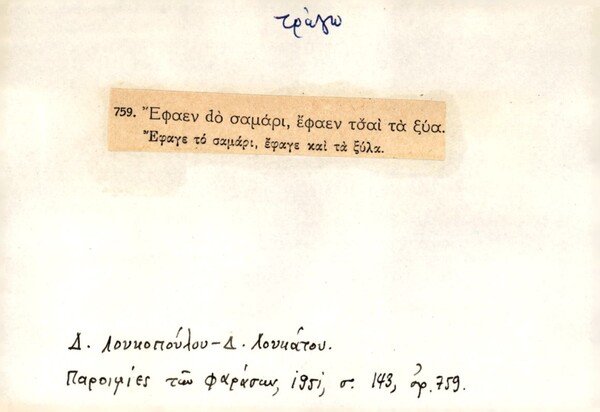 τρώγω
759. Ἔφαεν dὸ σαμάρι, ἔφαεν τσ̌αὶ τὰ ξύα.
Ἔφαγε τό σαμάρι, ἔφαγε καὶ τὰ ξύλα.
Δ. Λουκοπούλου-Δ. Λουκάτου.
Παροιμίες τῶν Φαράσων, 1951, σ. 143, ἀρ. 759.